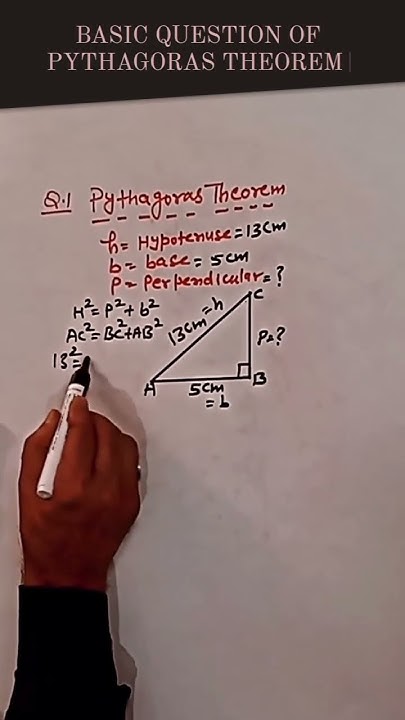 BASIC QUESTION OF
PYTHAGORAS THEOREM
Q.1 Pythagoras Theorem
h = Hypotenuse = 13cm
b = base = 5cm
P = Perpendicular = ?
H² = P² + b²
AC² = BC² + AB²
13² =
C
13cm = h
P = ?
A
B
5cm
= b